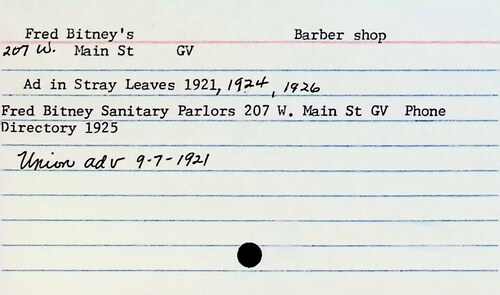 Fred Bitney's Barber shop
207 W. Main St GV
Ad in Stray Leaves 1921, 1924, 1926
Fred Bitney Sanitary Parlors 207 W. Main St GV Phone
Directory 1925
Union adv 9-7-1921